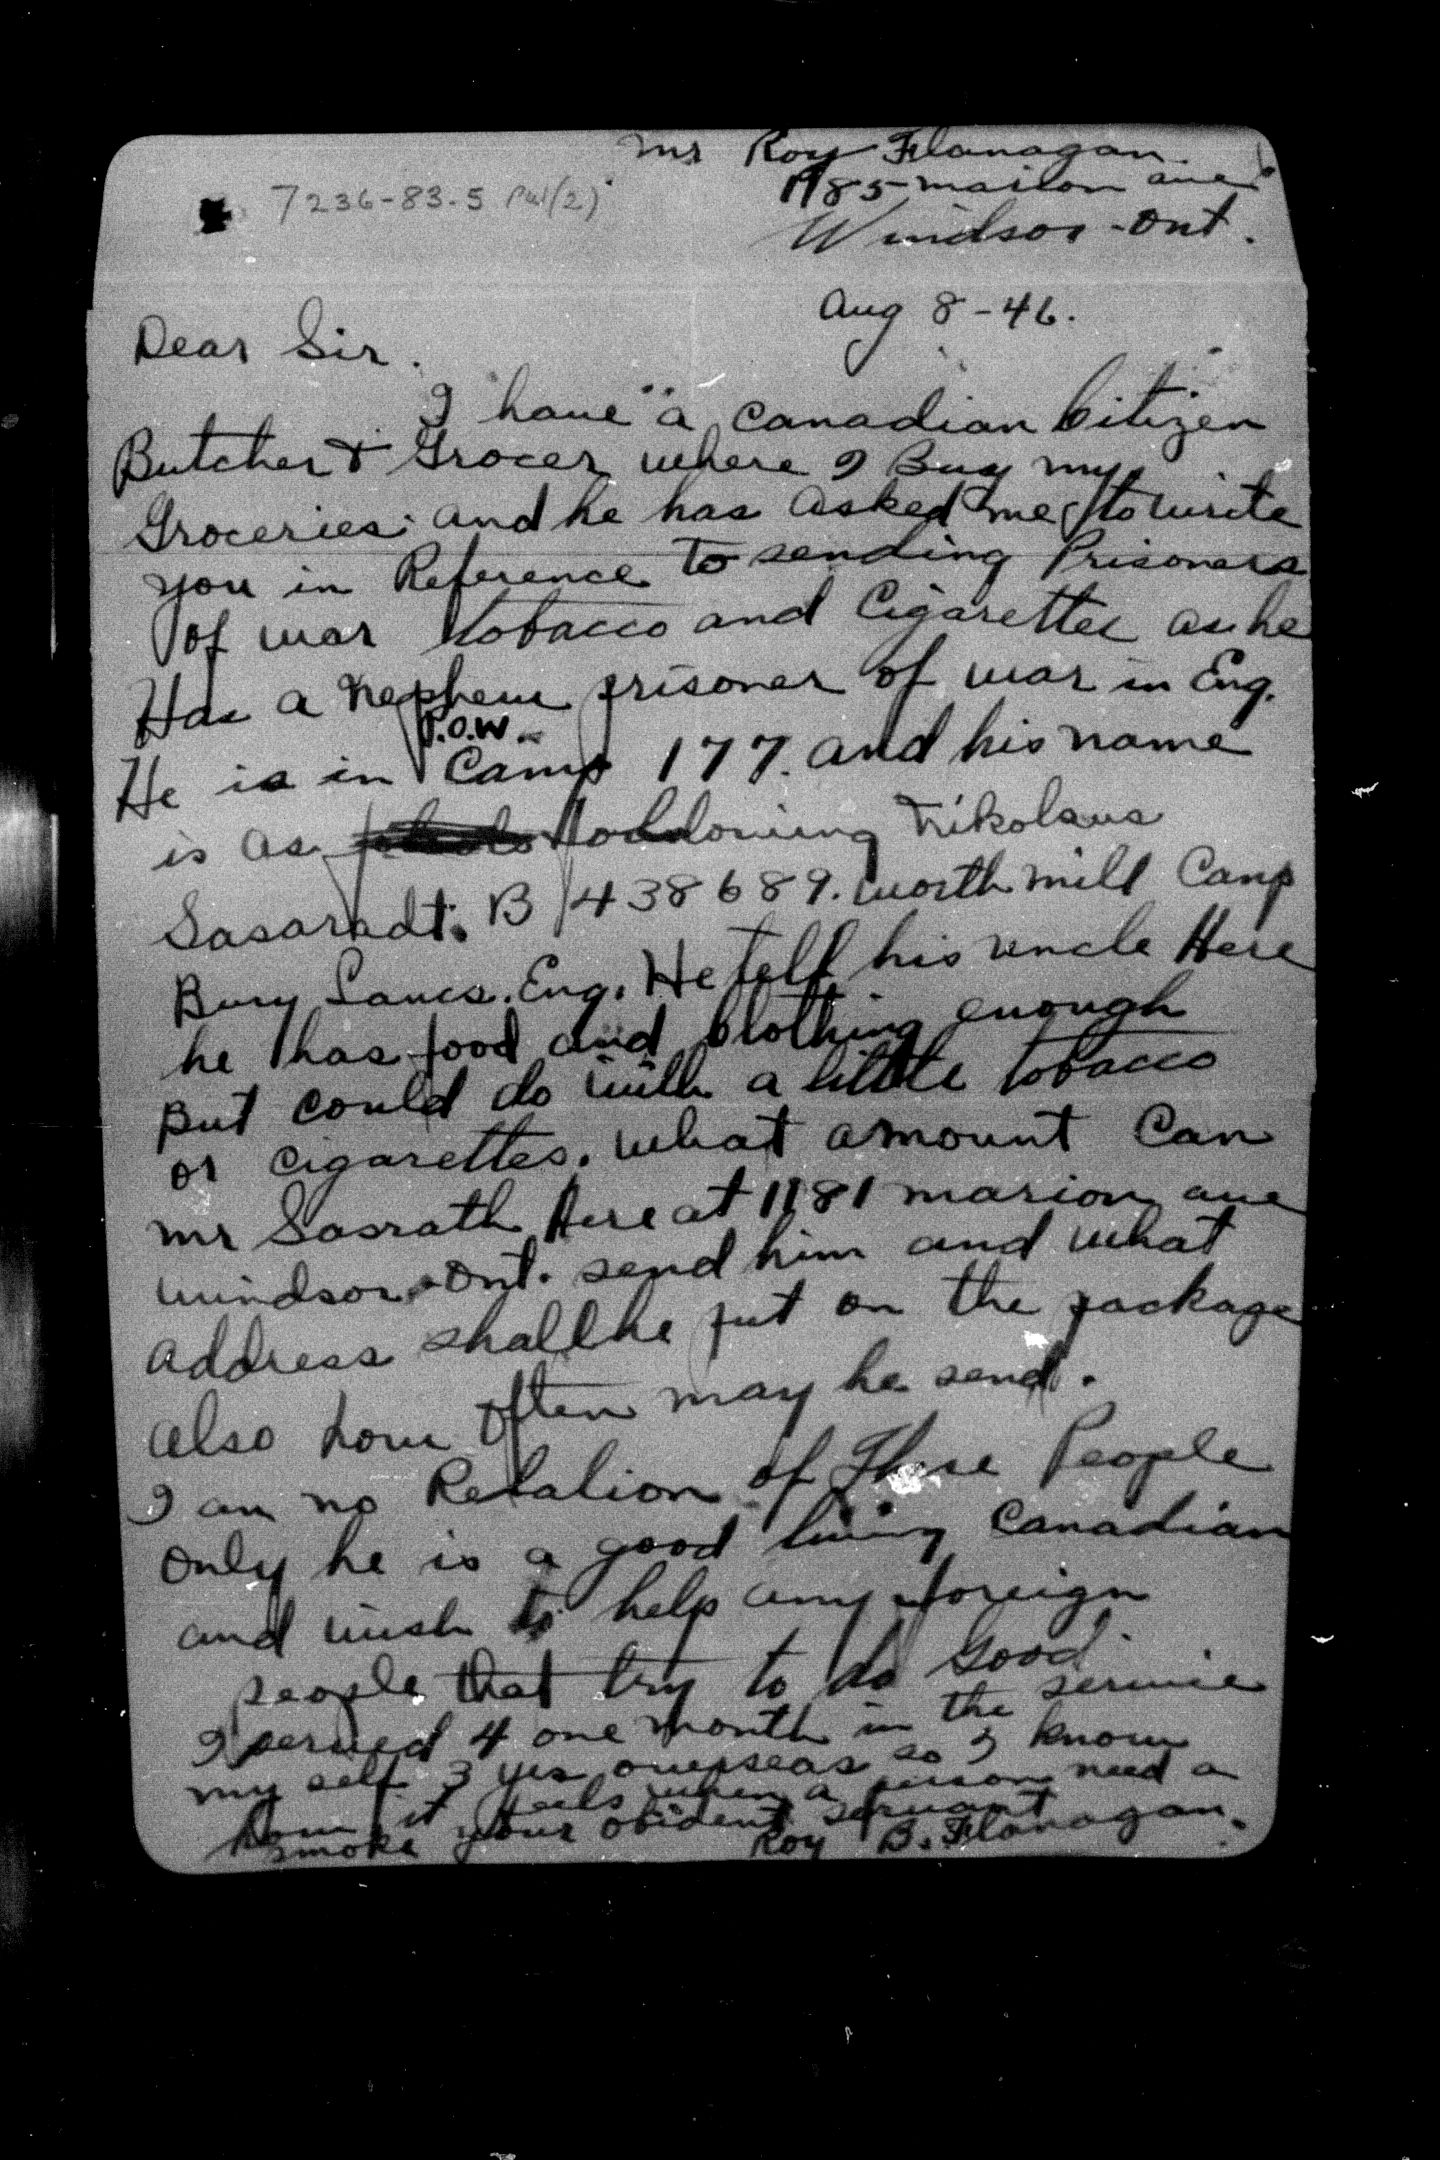 Mr Roy Flanagan.
1185 marion ave
7236-83.5 Pt1(2)
Windsor-Ont.
Aug 8-46.
Dear Sir.
I have a Canadian Citizen
Butcher & Grocer where I Buy my
Groceries. and he has asked me to write
you in Reference to sending Prisoners
of war tobacco and Cigarettes as he
Has a Nephew prisoner of war in Eng.
P.O.W.
He is in Camp 177. and his name
is as folldowing Nikolaus
Sasaradt. B 438689. Worth mill Camp
Bury Lancs. Eng. He tell his uncle Here
he has food and Clothing enough
But could do with a little tobacco
or cigarettes. What amount Can
mr Sasrath Here at 1181 marion ave
windsor-Ont. send him and what
address shall he put on the package
also how often may he send.
I am no Relation of These People
Only he is a good living Canadian
and wish to help any foreign
people that try to do Good
I served 4 one month in the service
my self 3 yrs overseas so I know
how it feels when a person need a
smoke your obident servant
Roy B. Flanagan.